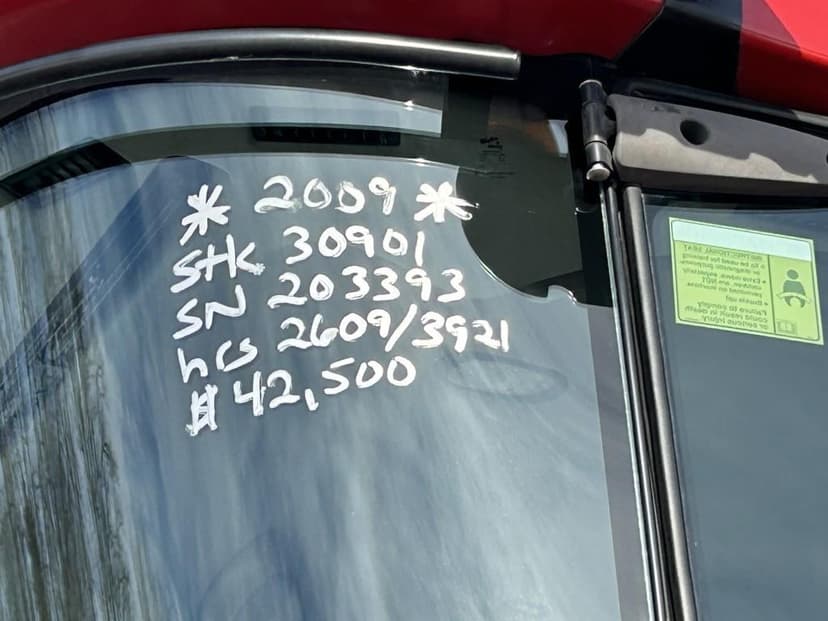 * 2009 *
Stk 30901
SN 203393
hrs 2609/3921
$ 42,500
INSTRUCTIONAL SEAT